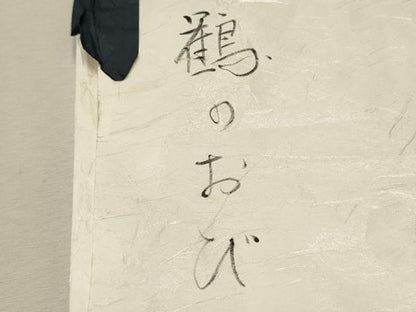 鶴のおび